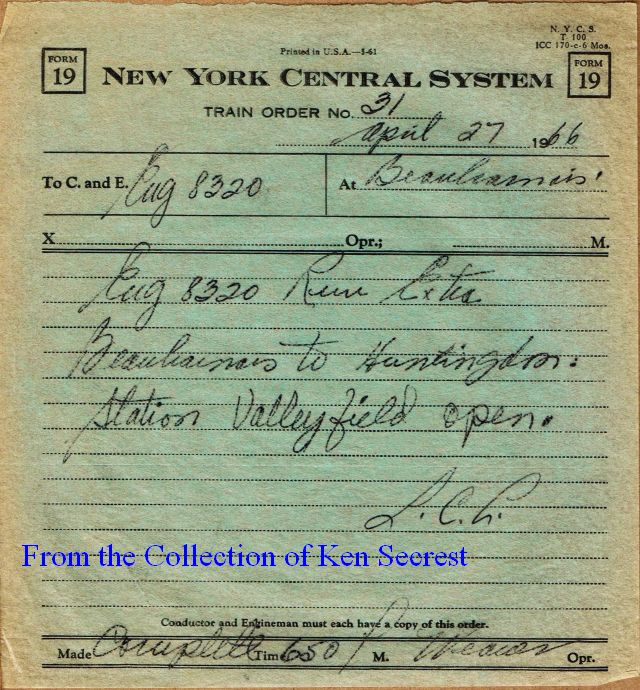 N. Y. C. S.
T 100
ICC 170-c-6 Mos.
Printed in U.S.A.—5-61
FORM 19
NEW YORK CENTRAL SYSTEM
FORM 19
TRAIN ORDER No. 31
April 27 1966
To C. and E. Eng 8320 At Beauharnois
X Opr.; M.
Eng 8320 Run Extra
Beauharnois to Huntingdon.
Station Valleyfield open.
From the Collection of Ken Secrest
Conductor and Engineman must each have a copy of this order.
Made Complete Time 650 M. Opr.